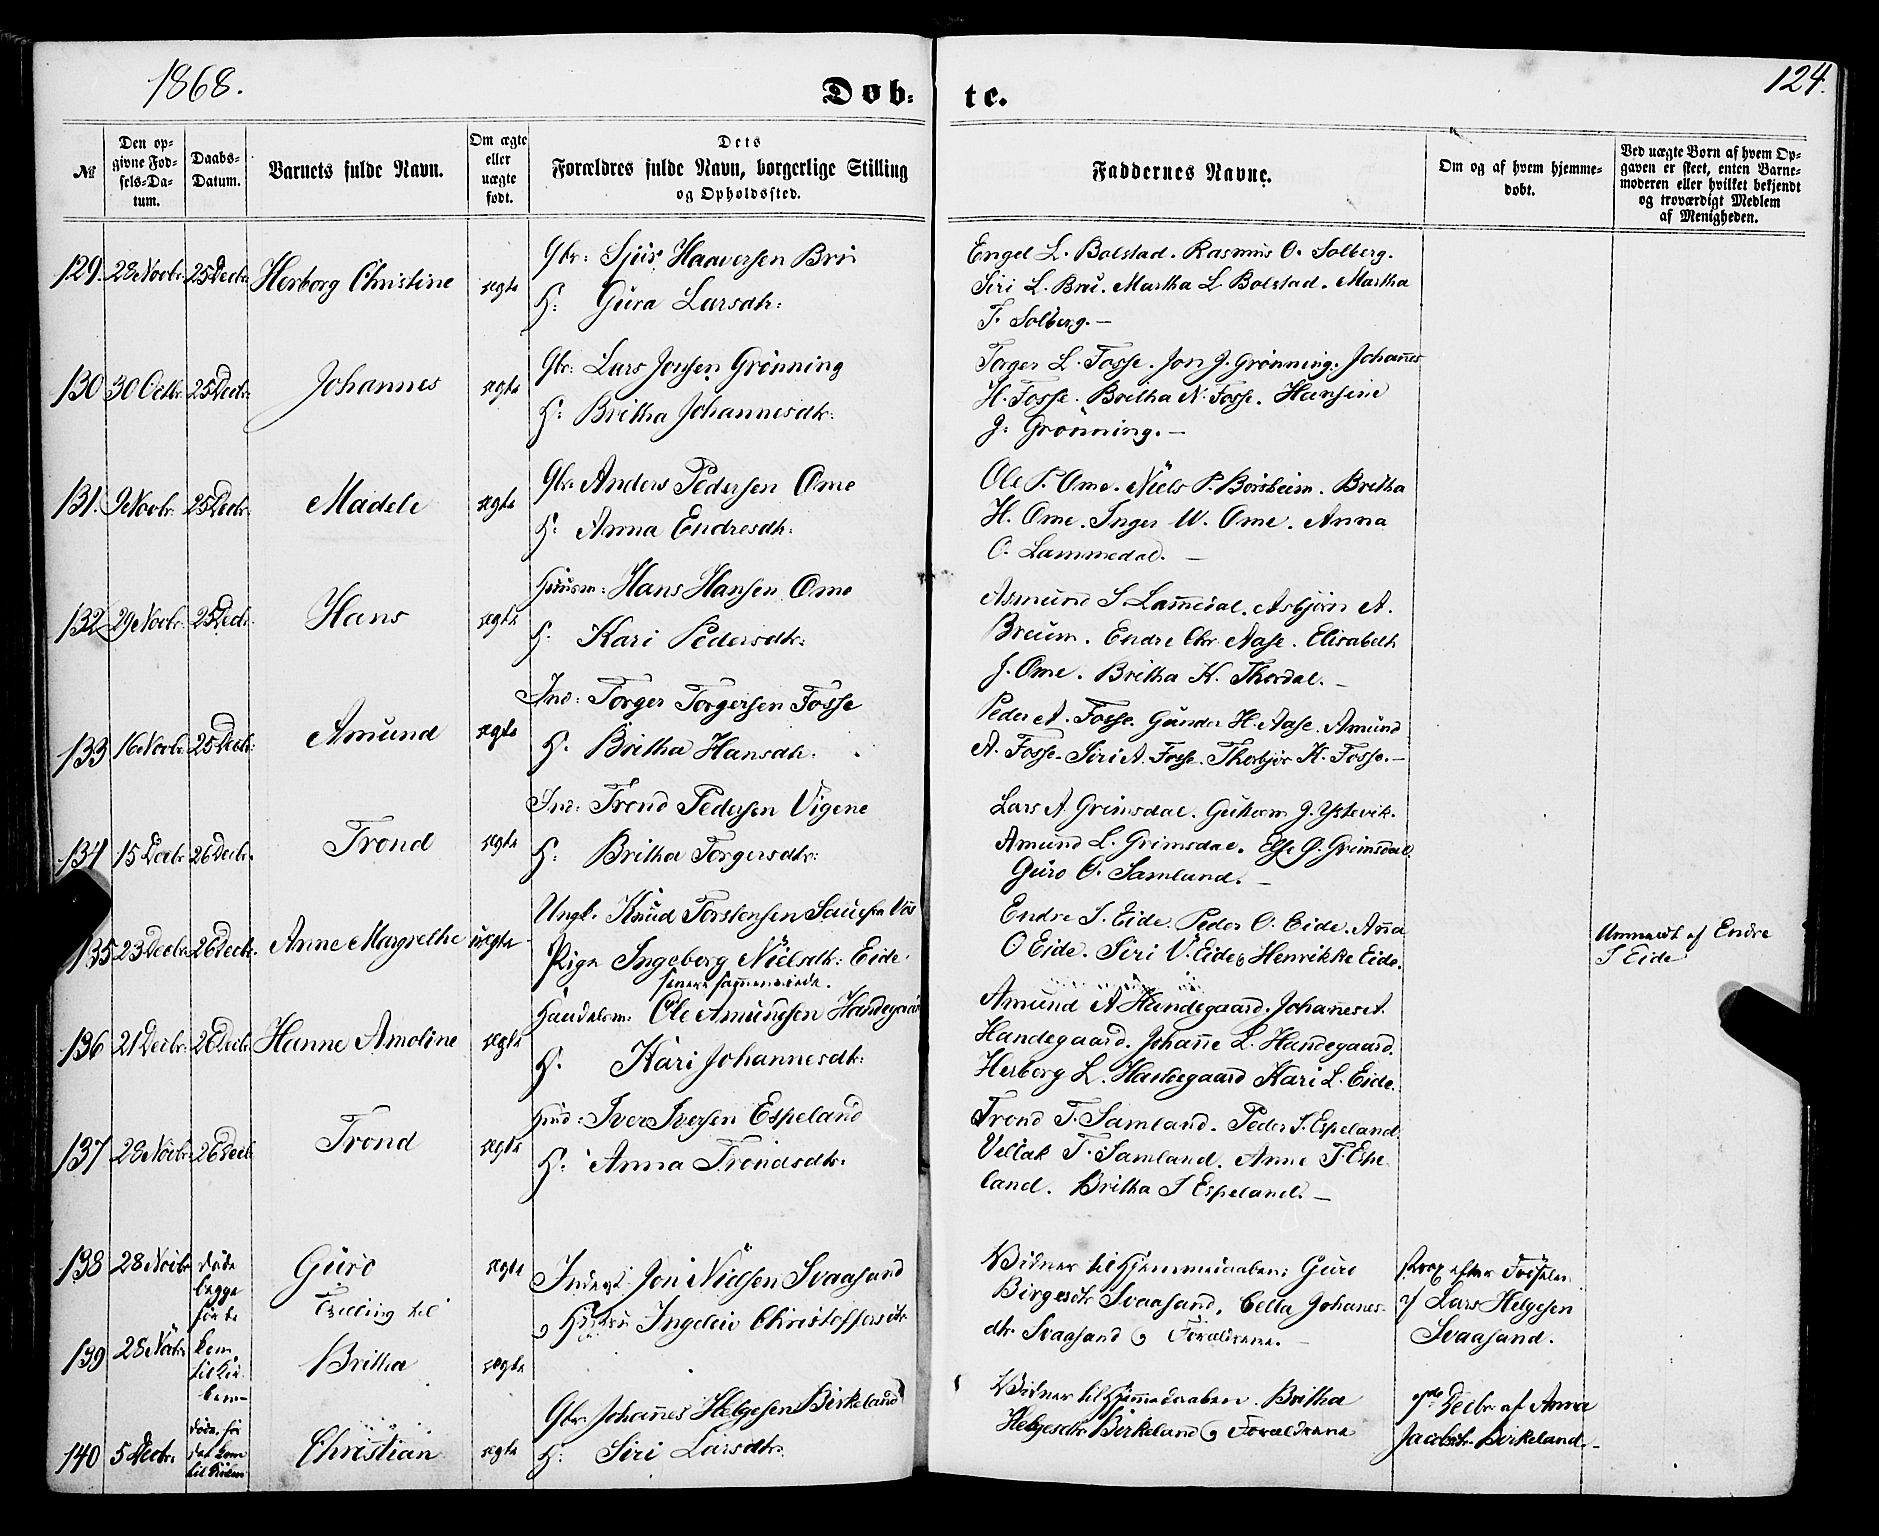 1868.
Døb-
te.
124.
№
Den op-
givne Fød-
sels-Da-
tum.
Daabs-
Datum.
Barnets fulde Navn.
Om ægte
eller
uægte
født.
Dets
Forældres fulde Navn, borgerlige Stilling
og Opholdssted.
Faddernes Navne.
Om og af hvem hjemme-
døbt.
Ved uægte Børn af hvem Op-
gaven er skeet, enten Barne-
moderen eller hvilket bekjendt
og troværdigt Medlem
af Menigheden.
129. 28 Novbr. 25 Decbr. Herborg Christine ægte
Gbr: Sjur Haaversen Bru
H: Gura Larsdtr:
Engel L. Bolstad. Rasmus O. Solberg.
Siri L. Bru. Martha L Bolstad. Martha
T. Solberg. —
130 30 Octbr. 25 Decbr. Johannes ægte
Gbr: Lars Jonsen Grønning
H: Britha Johannesdtr:
Torger L. Fosse. Jon J. Grønning. Johañes
H. Fosse. Britha N. Fosse. Hansine
J. Grønning. —
131. 9 Novbr. 25 Decbr. Madele ægte
Gbr Anders Pedersen Ome
H: Anna Endresdtr:
Ole P. Ome. Niels P. Børsheim. Britha
H. Ome. Inger W. Ome. Anna
O. Lammedal. —
132 29 Novbr. 25 Decbr. Hans ægte
Huusm: Hans Hansen Ome
H. Kari Pedersdtr:
Asmund S. Lam̄edal. Asbjørn A.
Breium. Endre Chr. Aase. Elisabeth
J. Ome. Britha K. Thordal. —
133 16 Novbr. 25 Decbr: Amund ægte
Ind: Torger Torgersen Fosse
H. Britha Hansdtr:
Peder A. Fosse. Gunder H. Aase. Amund
A. Fosse. Siri A. Fosse. Thorbjør K. Fosse. —
134 15 Decbr 26 Decbr. Trond ægte
Ind: Trond Pedersen Vigene
H: Britha Torgersdtr:
Lars A Grimsdal. Guttorm J. Ystevik.
Amund L. Grimsdal. Else G. Grimsdal.
Guro O. Samland. —
135 23 Decbr 26 Decbr. Anne Margrethe uægte
Ungk. Knud Torstensen Saue fra Vos
Pige Ingeborg Nielsdtr: Eide.
Endre S. Eide. Peder O. Eide. Aña
O Eide. Siri V. Eide, Henrikke Eide.
Anmeldt af Endre
S Eide
136 21 Decbr. 26 Decbr Hanne Amoline ægte
Handelsm: Ole Amundsen Handegaard
H. Kari Johannesdtr:
Amund A Handegaard. Johañes A.
Handegaard. Johañe L. Handegaard.
Herborg L. Handegaard Kari L. Eide.
137 28 Novbr. 26 Decbr Trond ægte
Ind: Iver Iversen Espeland
H. Anna Trondsdtr.
Trond T. Samland. Peder I. Espeland
Vellak T. Samland. Anne T. Espe-
land. Britha I Espeland. —
138 28 Novbr døde
begge
før de
Guro ægte
Tvilling til
Inderst Jon Nielsen Svaasand
Hustru Ingeleiv Christoffersdtr
Vidner til Hjemmedaaben: Guro
Birgesdtr Svaasand, Cella Johanes-
dtr. Svaasand og Forældrene. —
strax efter Fødselen
af Lars Helgesen
Svaasand.
139 28 Novbr kom
til Kir-
ken —
Britha ægte
140 5 Decbr. døde, før
det kom
til Kirken
Christian ægte
Gbr. Johañes Helgesen Birkeland
H: Siri Larsdtr:
Vidner til Hjem̄edaaben. Britha
Helgesdtr Birkeland og Forældrene
7de Decbr af Anna
Jacobsdtr Birkeland. —